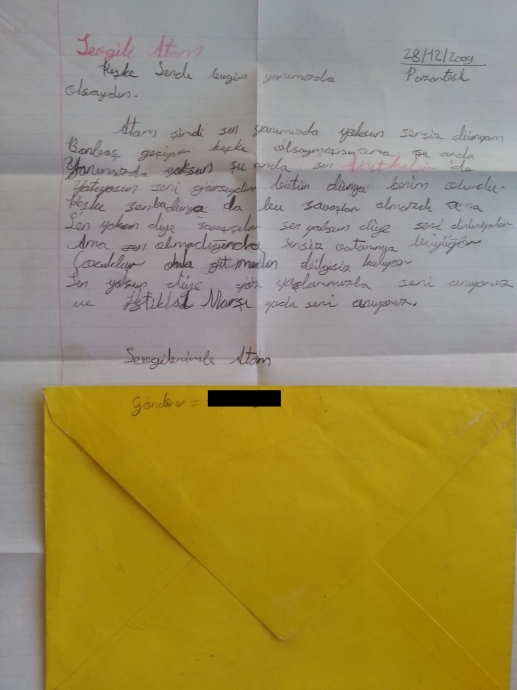 Sevgili Atam
28/12/2009
Pazartesi
Keşke Sende bugün yanımızda
olsaydın.
Atam şimdi sen yanımızda yoksun sensiz dünyam
Bomboş geçiyor keşke şu anda
Yanımızda yoksun şu anda sen Anıtkabir'de
Yatıyosun seni görseydim bütün dünya benim olurdu
keşke dünya da bu savaşlar olmazdı ama
Sen yoksun diye savaşıyolar sen yoksun diye seni
Ama sen olmadığında sensiz vatanımız
Çocuklar gitmeden
Sen yoksun diye göz yaşlarımızla seni anıyoruz
ve İstiklal Marşı seni anıyoruz.
Sevgilerimle Atam
Gönderen =